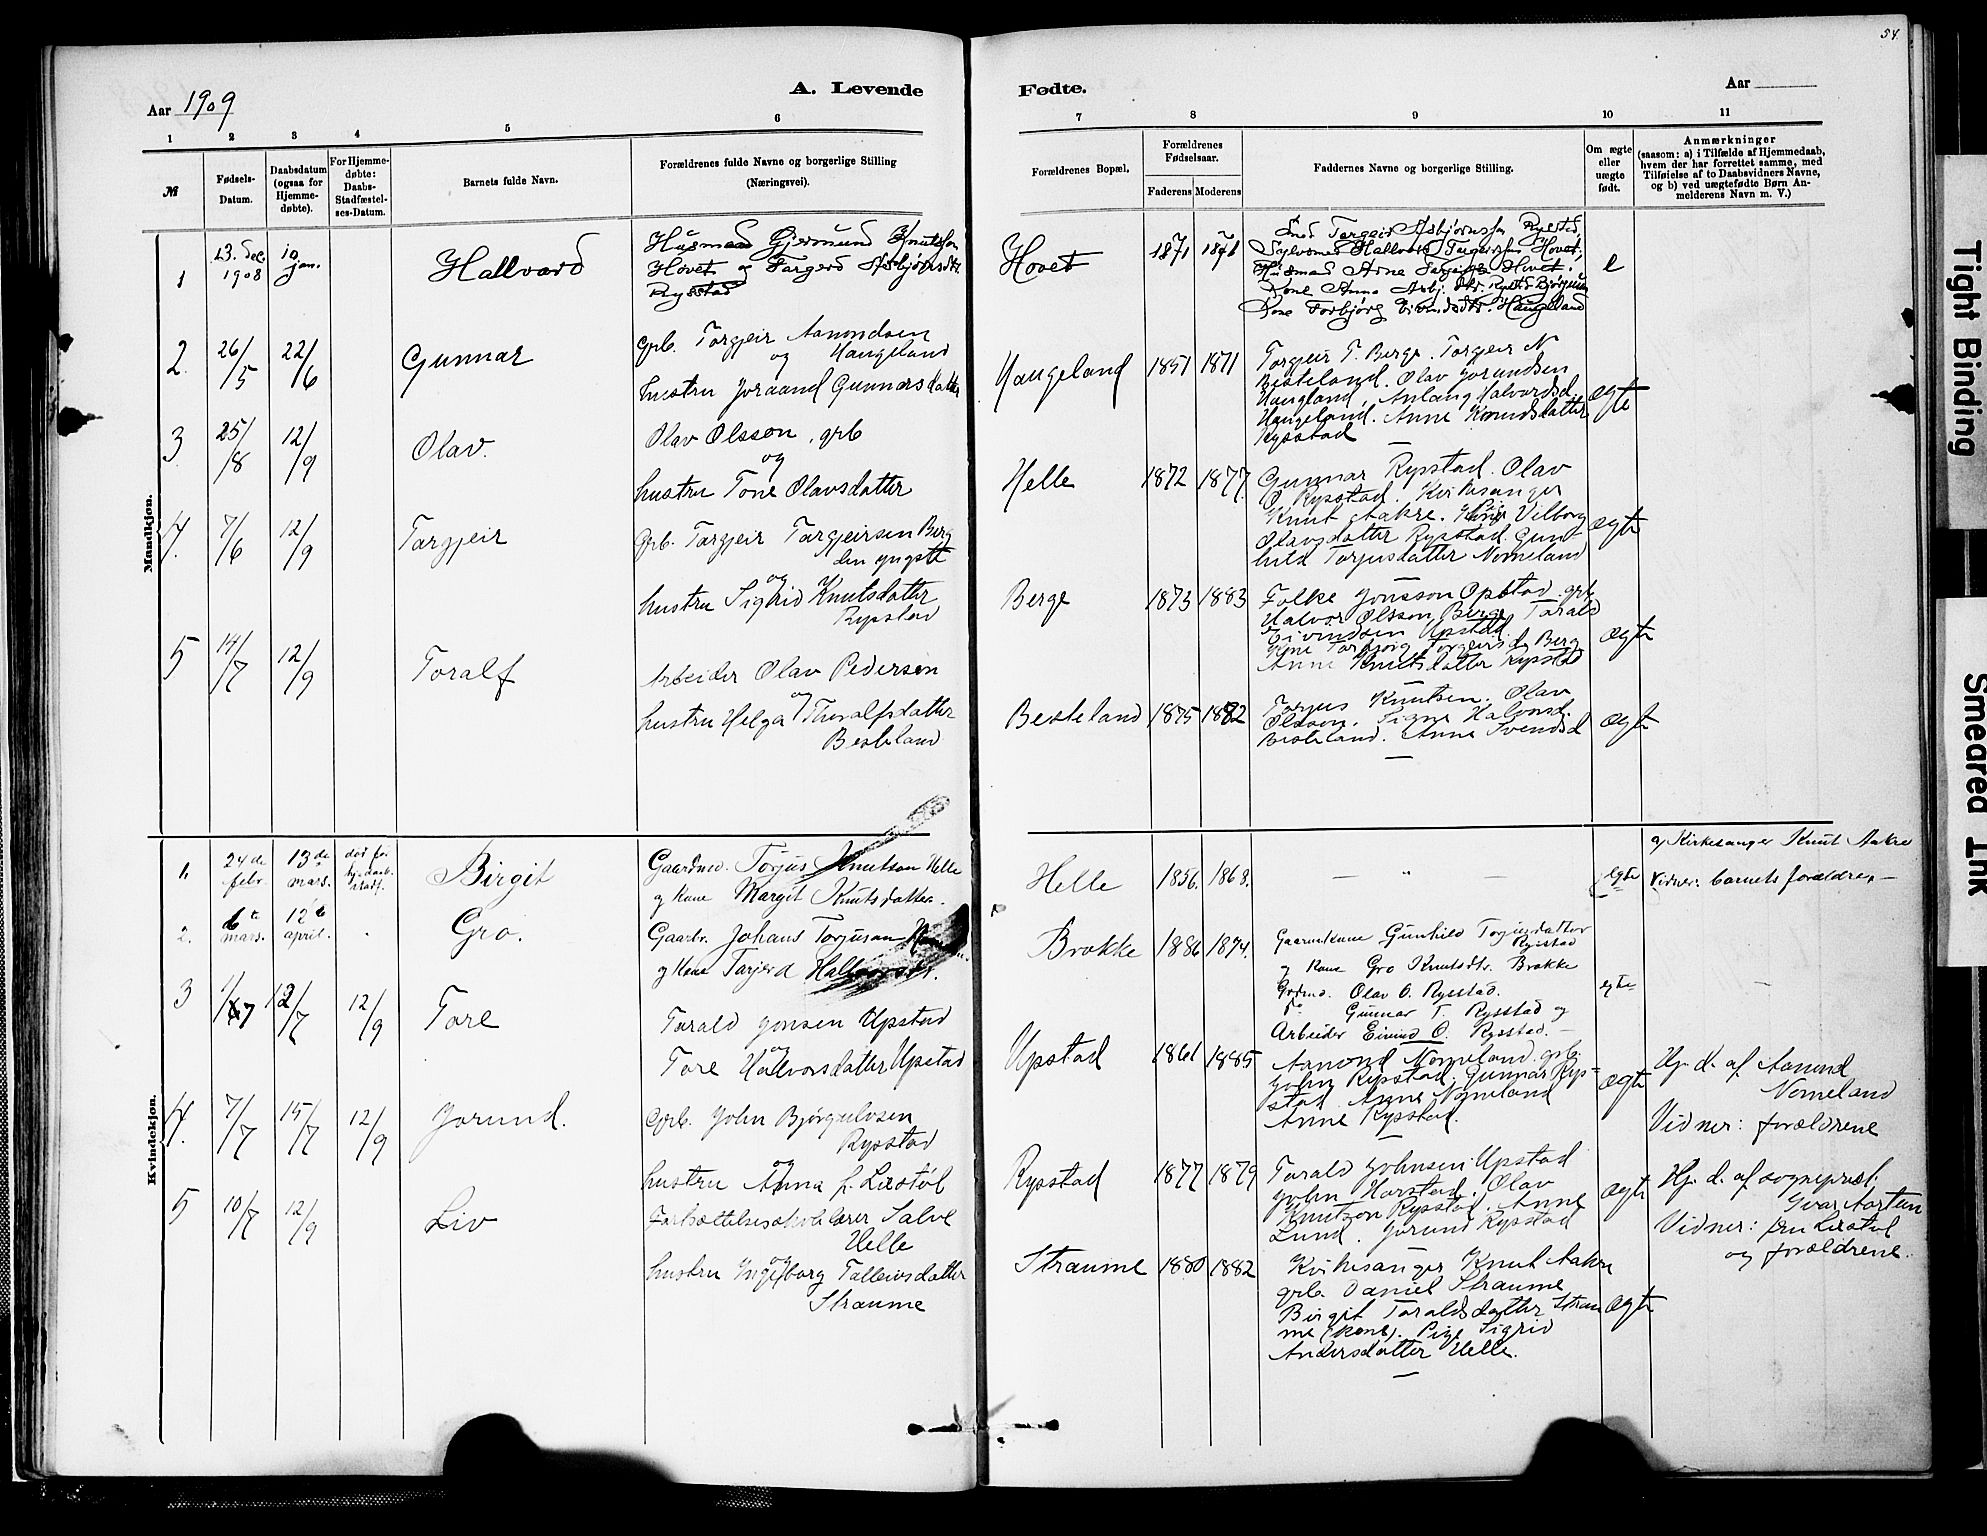 54.
Aar 1909
A. Levende
Fødte.
Aar
1 2 3 4 5 6
7 8 9 10 11
№
Fødsels-
Datum.
Daabsdatum
(ogsaa for
Hjemme-
døbte).
For Hjemme-
døbte:
Daabs-
Stadfæstel-
ses-Datum.
Barnets fulde Navn.
Forældrenes fulde Navne og borgerlige Stilling
(Næringsvei).
Forældrenes Bopæl.
Forældrenes
Fødselsaar.
Faderens
Moderens
Faddernes Navne og borgerlige Stilling.
Om ægte
eller
uægte
født.
Anmærkninger
(saasom: a) i Tilfælde af Hjemmedaab,
hvem der har forrettet samme, med
Tilføielse af to Daabsvidners Navne,
og b) ved uægtefødte Børn An-
melderens Navn m. V.)
Mandkjøn.
1
13. dec.
1908
10
jan.
Hallvard
Husmand Gjermund Knutsson
Hovet og Targerd Asbjørnsdtr.
Rysstad
Hovet
1871
Targeir Asbjørnsson Rysstad,
Hallvard Targeirsson Hovet,
Husmand Arne Hovet.
Kone Anna Asbj. dtr. Rysstad
Kone Torbjørg Eivindsdtr. Haugeland
e
2.
26/5
22/6
Gunnar
Grb. Torgjeir Aanondsen
og Haugeland
hustru Joraand Gunnarsdatter
Haugeland
1851
1871
Torgjeir T. Berge. Torgjeir N
Besteland. Olav Jorundsen
Haugland, Anlaug Halvardsd.
Haugeland. Anne Knudsdatter
Rysstad
ægte
3
25/8
12/9
Olav.
Olav Olsson, grb
og
hustru Tone Olavsdatter
Helle
1872
1877.
Gunnar Rysstad. Olav
O Rysstad. Kirkesanger
Knut Aakre. Vilborg
Olavsdatter Rysstad. Gun-
hild Torjusdatter Nomeland
ægte
4.
7/6
12/9
Targjeir
Grb. Targjeir Targjeirsen Berg
den yngste
og
hustru Sigrid Knutsdatter
Rysstad
Berge
1873
1883
Folke Jonsson Opstad grb.
Halvor Olsson Berge Tarald
Eivindsen Upstad.
Torbjørg Torgeirsd. Berg
Anne Knutsdatter Rysstad
ægte
5
14/7
12/9
Toralf
Arbeider Olav Pedersen
og
hustru Helga Thoralfsdatter
Besteland
Besteland
1875
1882
Torjus Knutsen. Olav
Olsson. Signe Halvorsd.
Besteland. Anne Svendsd
ægte
Kvindekjøn.
1.
24de
febr.
13de
mars.
Birgit
Gaardmd. Torjus Knutson Helle
og Kone Margit Knutsdatter.
Helle
1856.
1868.
ægte
af Kirkesanger Knut Aakre
Vidner: barnets forældre,
2.
6te
mars.
12te
april.
Gro.
Gaarbr. Johans Torjuson
og Kone Tarjerd Hallvorsdtr.
Brokke
1886
1874.
Gaardmkone Gunhild Torjusdatter
Rysstad
og Kone Gro Knutsdtr. Brokke
Grdmd. Olav O. Rysstad.
Gunnar T. Rysstad og
Arbeider Eivind O. Rysstad.
ægte
3
12/7
12/9
Tore
Tarald Jonsen Upstad
og
Tore Halvorsdatter Upstad
Upstad
1861
1885
Aanond Nomeland. grb.
John Rysstad. Gunnar Rys-
stad. Anne Nomeland
Anne Rysstad.
ægte
Hj. d. af Aanund
Nomeland
Vidner: forældrene
4.
7/7
15/7
12/9
Jorund.
Grb. John Bjørgulvsen
Rysstad
og
hustru Anna f. Lixstøl
Rysstad
1877
1879
Tarald Johnsen Upstad
John Harstad. Olav
Knutson Rysstad. Anne
Lund. Jorund Rysstad
ægte
Hj. d. af sogneprest
Ivar Aarten
Vidner: fru Lixstøl
og forældrene.
5
10/7
12/9
Liv
Fortsættelsesskolelærer Salve
Helle
og
hustru Ingeborg Talleivsdatter
Straume
Straume
1880
1882
Kirkesanger Knut Aakre
grb. Daniel Straume
Birgit Taraldsdatter Strau
me (kone). Pige Sigrid
Andersdatter Helle.
ægte
Tight Binding
Smeared Ink